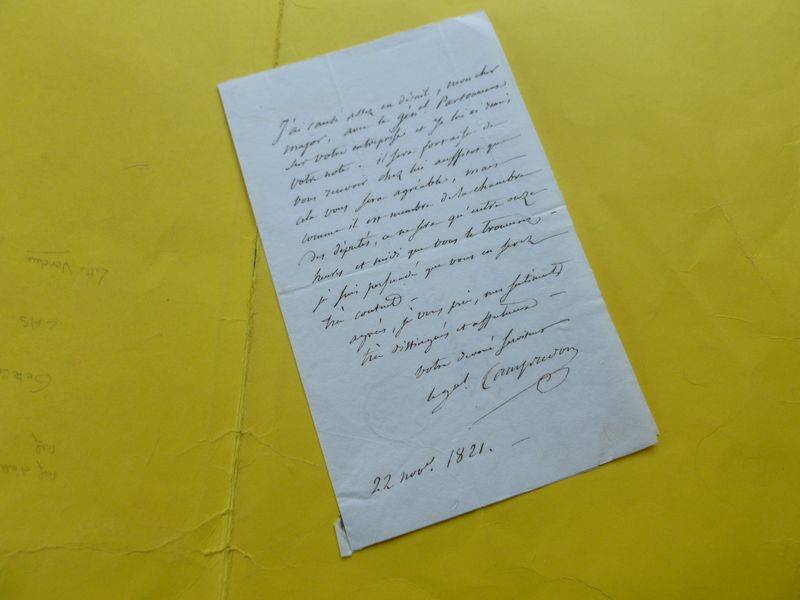 J'ai causé assez en détail, mon cher
major, avec le gén.al Partouneaux
sur votre entreprise et je lui ai remis
votre note. il sera fort aise de
vous recevoir chez lui aussitot que
cela vous sera agréable, mais
comme il est membre de la chambre
des députés, ce ne sera qu'entre onze
heures et midi que vous le trouverez –
je suis persuadé que vous en serez
très content –
agréez, je vous prie, mes sentiments
très distingués et affectueux –
votre dévoué serviteur
le gal. Campredon
22 nov. 1821. –
Lettre Vendue
LAS